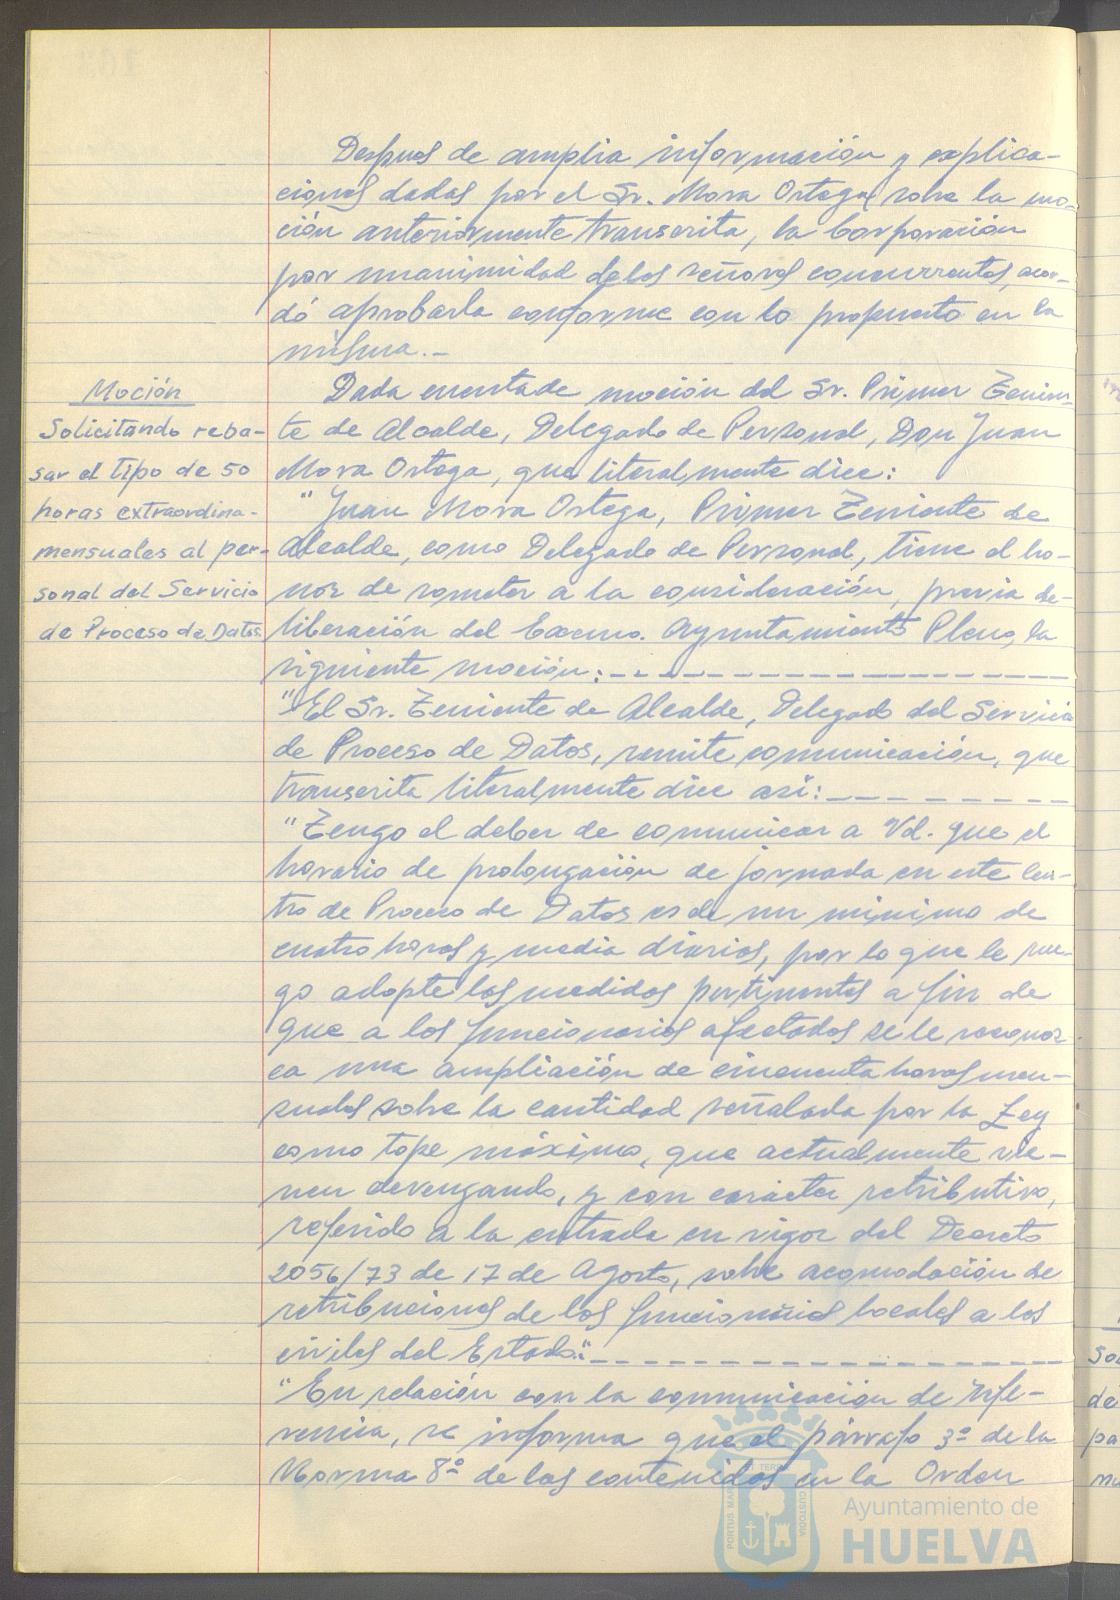 Despues de amplia información y explica-
ciones dadas por el Sr. Mora Ortega, sobre la mo-
ción anteriormente transcrita, la Corporación
por unanimidad de los señores concurrentes, acor-
dó aprobarla conforme con lo propuesto en la
misma.-
Moción
Solicitando reba-
sar el tipo de 50
horas extraordina-
mensuales al per-
sonal del Servicio
de Proceso de Datos
Dada cuenta de moción del Sr. Primer Tenien-
te de Alcalde, Delegado de Personal, Don Juan
Mora Ortega, que literalmente dice:
"Juan Mora Ortega, Primer Teniente de
Alcalde, como Delegado de Personal, tiene el ho-
nor de someter a la consideración, previa de-
liberación del Excmo. Ayuntamiento Pleno, la
siguiente moción:
"El Sr. Teniente de Alcalde, Delegado del Servicio
de Proceso de Datos, remite comunicación, que
transcrita literalmente dice así:
"Tengo el deber de comunicar a Vd. que el
horario de prolongación de jornada en este Cen-
tro de Proceso de Datos es de un minimo de
cuatro horas y media diarias, por lo que le rue-
go adopte las medidas pertinentes a fin de
que a los funcionarios afectados se le reconoz-
ca una ampliación de cincuenta horas men-
suales sobre la cantidad señalada por la Ley
como tope máximo, que actualmente vie-
nen devengando, y con carácter retributivo,
referido a la entrada en vigor del Decreto
2056/73 de 17 de Agosto, sobre acomodación de
retribuciones de los funcionarios locales a los
civiles del Estado."
"En relación con la comunicación de refe-
rencia, se informa que el párrafo 3º de la
Norma 8ª de las contenidas en la Orden
Ayuntamiento de
HUELVA